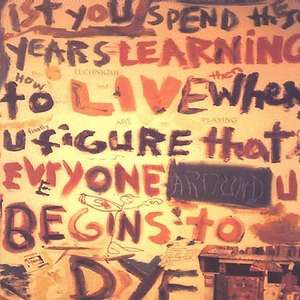 1st YOU SPEND the
YEARS LEARNING
HOW TECHNIQUE
to LIVE when
ART PLAYING
finally
u figure that
EVERYONE AROUND u
BEGINS to
DYE